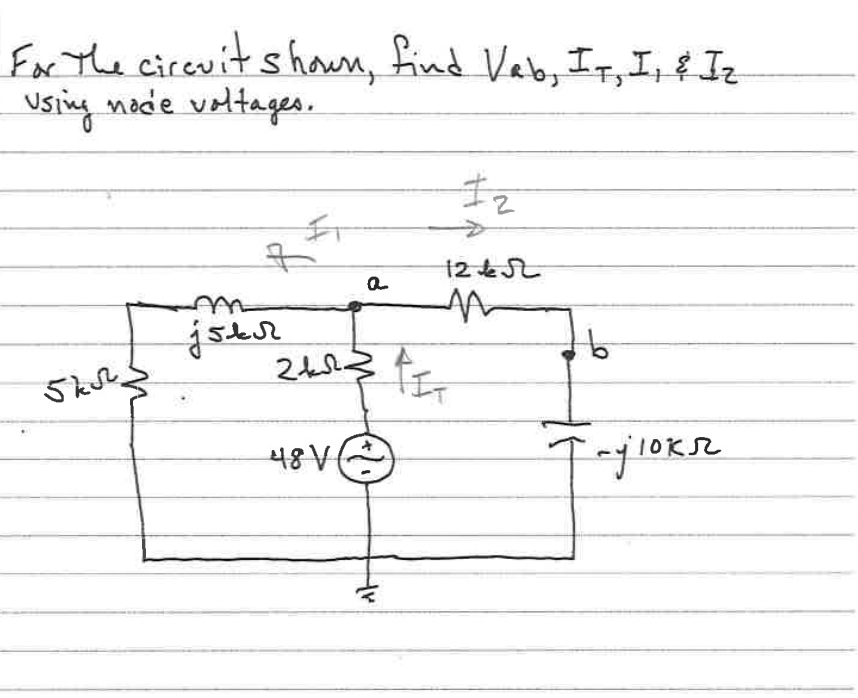 For The circuit shown, find Vab, I_T, I_1 & I_2
using node voltages.
I_2
I_1
12 kΩ
a
j5kΩ
b
2kΩ
I_T
5kΩ
48 V
+
-
-j10KΩ